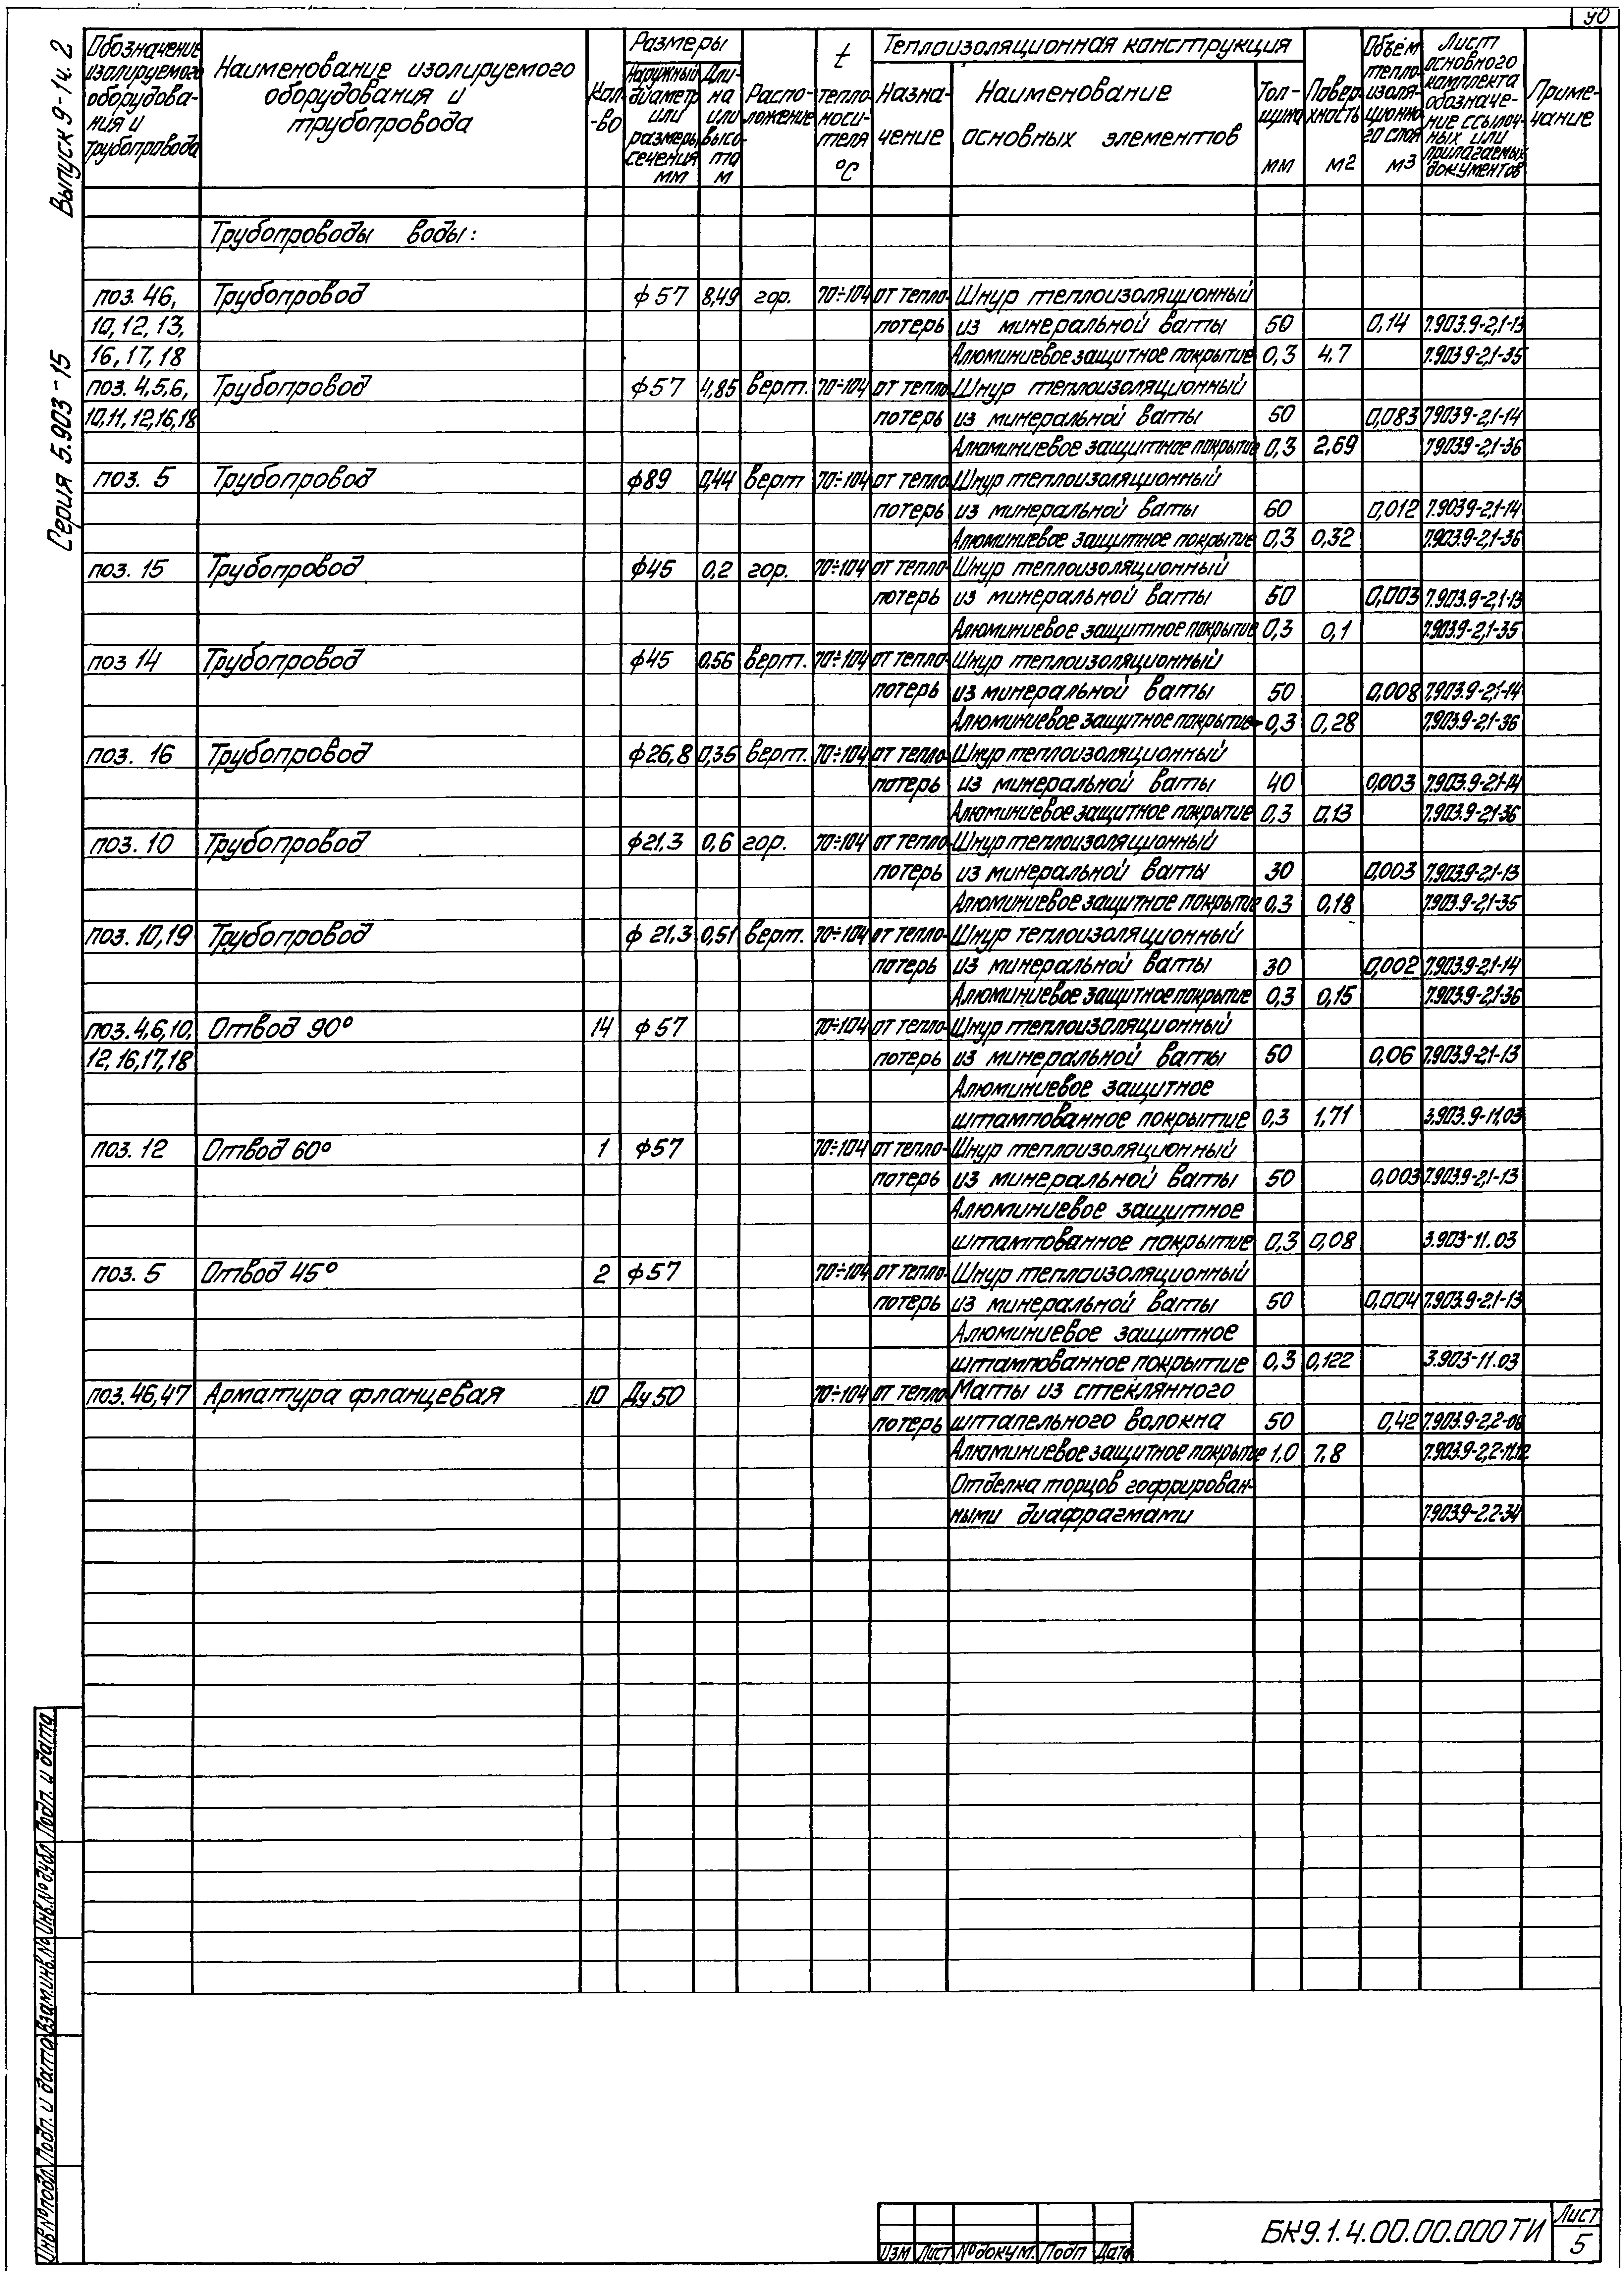 90
Выпуск 9-1ч. 2
Серия 5.903-15
Обозначение изолируемого оборудова- ния и трубопровода
Наименование изолируемого оборудования и трубопровода
Кол -во
Размеры
Наружный диаметр или размеры сечения мм
Дли- на или высо- та м
Распо- ложение
t тепло- носи- теля °С
Теплоизоляционная конструкция
Назна- чение
Наименование основных элементов
Тол- щина мм
Повер- хность м2
Объем тепло- изоля- ционно- го слоя м3
Лист основного комплекта обозначе- ние ссылоч- ных или прилагаемых документов
Приме- чание
Трубопроводы воды:
поз. 46, Трубопровод ϕ 57 8,49 гор. 70÷104 от тепло- Шнур теплоизоляционный
10, 12, 13, потерь из минеральной ваты 50 0,14 7.903.9-2,1-13
16, 17, 18 Алюминиевое защитное покрытие 0,3 4,7 7.903.9-2.1-35
поз. 4,5,6, Трубопровод ϕ57 4,85 верт. 70÷104 от тепло- Шнур теплоизоляционный
10,11,12,16,18 потерь из минеральной ваты 50 0,083 7.903.9-2,1-14
Алюминиевое защитное покрытие 0,3 2,69 7.903.9-2,1-36
поз. 5 Трубопровод ϕ89 0,44 верт 70÷104 от тепло- Шнур теплоизоляционный
потерь из минеральной ваты 60 0,012 7.903.9-2,1-14
Алюминиевое защитное покрытие 0,3 0,32 7.903.9-2,1-36
поз. 15 Трубопровод ϕ45 0,2 гор. 70÷104 от тепло- Шнур теплоизоляционный
потерь из минеральной ваты 50 0,003 7.903.9-2,1-13
Алюминиевое защитное покрытие 0,3 0,1 7.903.9-2,1-35
поз 14 Трубопровод ϕ45 0,56 верт. 70÷104 от тепло- Шнур теплоизоляционный
потерь из минеральной ваты 50 0,008 7.903.9-2,1-14
Алюминиевое защитное покрытие 0,3 0,28 7.903.9-2,1-36
поз. 16 Трубопровод ϕ26,8 0,35 верт. 70÷104 от тепло- Шнур теплоизоляционный
потерь из минеральной ваты 40 0,003 7.903.9-2,1-14
Алюминиевое защитное покрытие 0,3 0,13 7.903.9-2,1-36
поз. 10 Трубопровод ϕ21,3 0,6 гор. 70÷104 от тепло- Шнур теплоизоляционный
потерь из минеральной ваты 30 0,003 7.903.9-2,1-13
Алюминиевое защитное покрытие 0,3 0,18 7.903.9-2,1-35
поз. 10,19 Трубопровод ϕ 21,3 0,51 верт. 70÷104 от тепло- Шнур теплоизоляционный
потерь из минеральной ваты 30 0,002 7.903.9-2,1-14
Алюминиевое защитное покрытие 0,3 0,15 7.903.9-2,1-36
поз. 4,6,10, Отвод 90° 14 ϕ 57 70÷104 от тепло- Шнур теплоизоляционный
12, 16,17,18 потерь из минеральной ваты 50 0,06 7.903.9-2,1-13
Алюминиевое защитное
штампованное покрытие 0,3 1,71 3.903.9-11,03
поз. 12 Отвод 60° 1 ϕ57 70÷104 от тепло- Шнур теплоизоляционный
потерь из минеральной ваты 50 0,003 7.903.9-2,1-13
Алюминиевое защитное
штампованное покрытие 0,3 0,08 3.903-11.03
поз. 5 Отвод 45° 2 ϕ57 70÷104 от тепло- Шнур теплоизоляционный
потерь из минеральной ваты 50 0,004 7.903.9-2.1-13
Алюминиевое защитное
штампованное покрытие 0,3 0,122 3.903-11.03
поз. 46,47 Арматура фланцевая 10 Ду 50 70÷104 от тепло Маты из стеклянного
потерь штапельного волокна 50 0,42 7.903.9-2.2-06
Алюминиевое защитное покрытие 1,0 7,8 7.903.9-2,2-11,12
Отделка торцов гофрирован-
ными диафрагмами 7.903.9-2.2-34
Инв.№ подл. Подп. и дата Взам.инв.№ Инв.№ дубл. Подп. и дата
Изм Лист № докум. Подп Дата
БК9.1.4.00.00.000ТИ
Лист
5